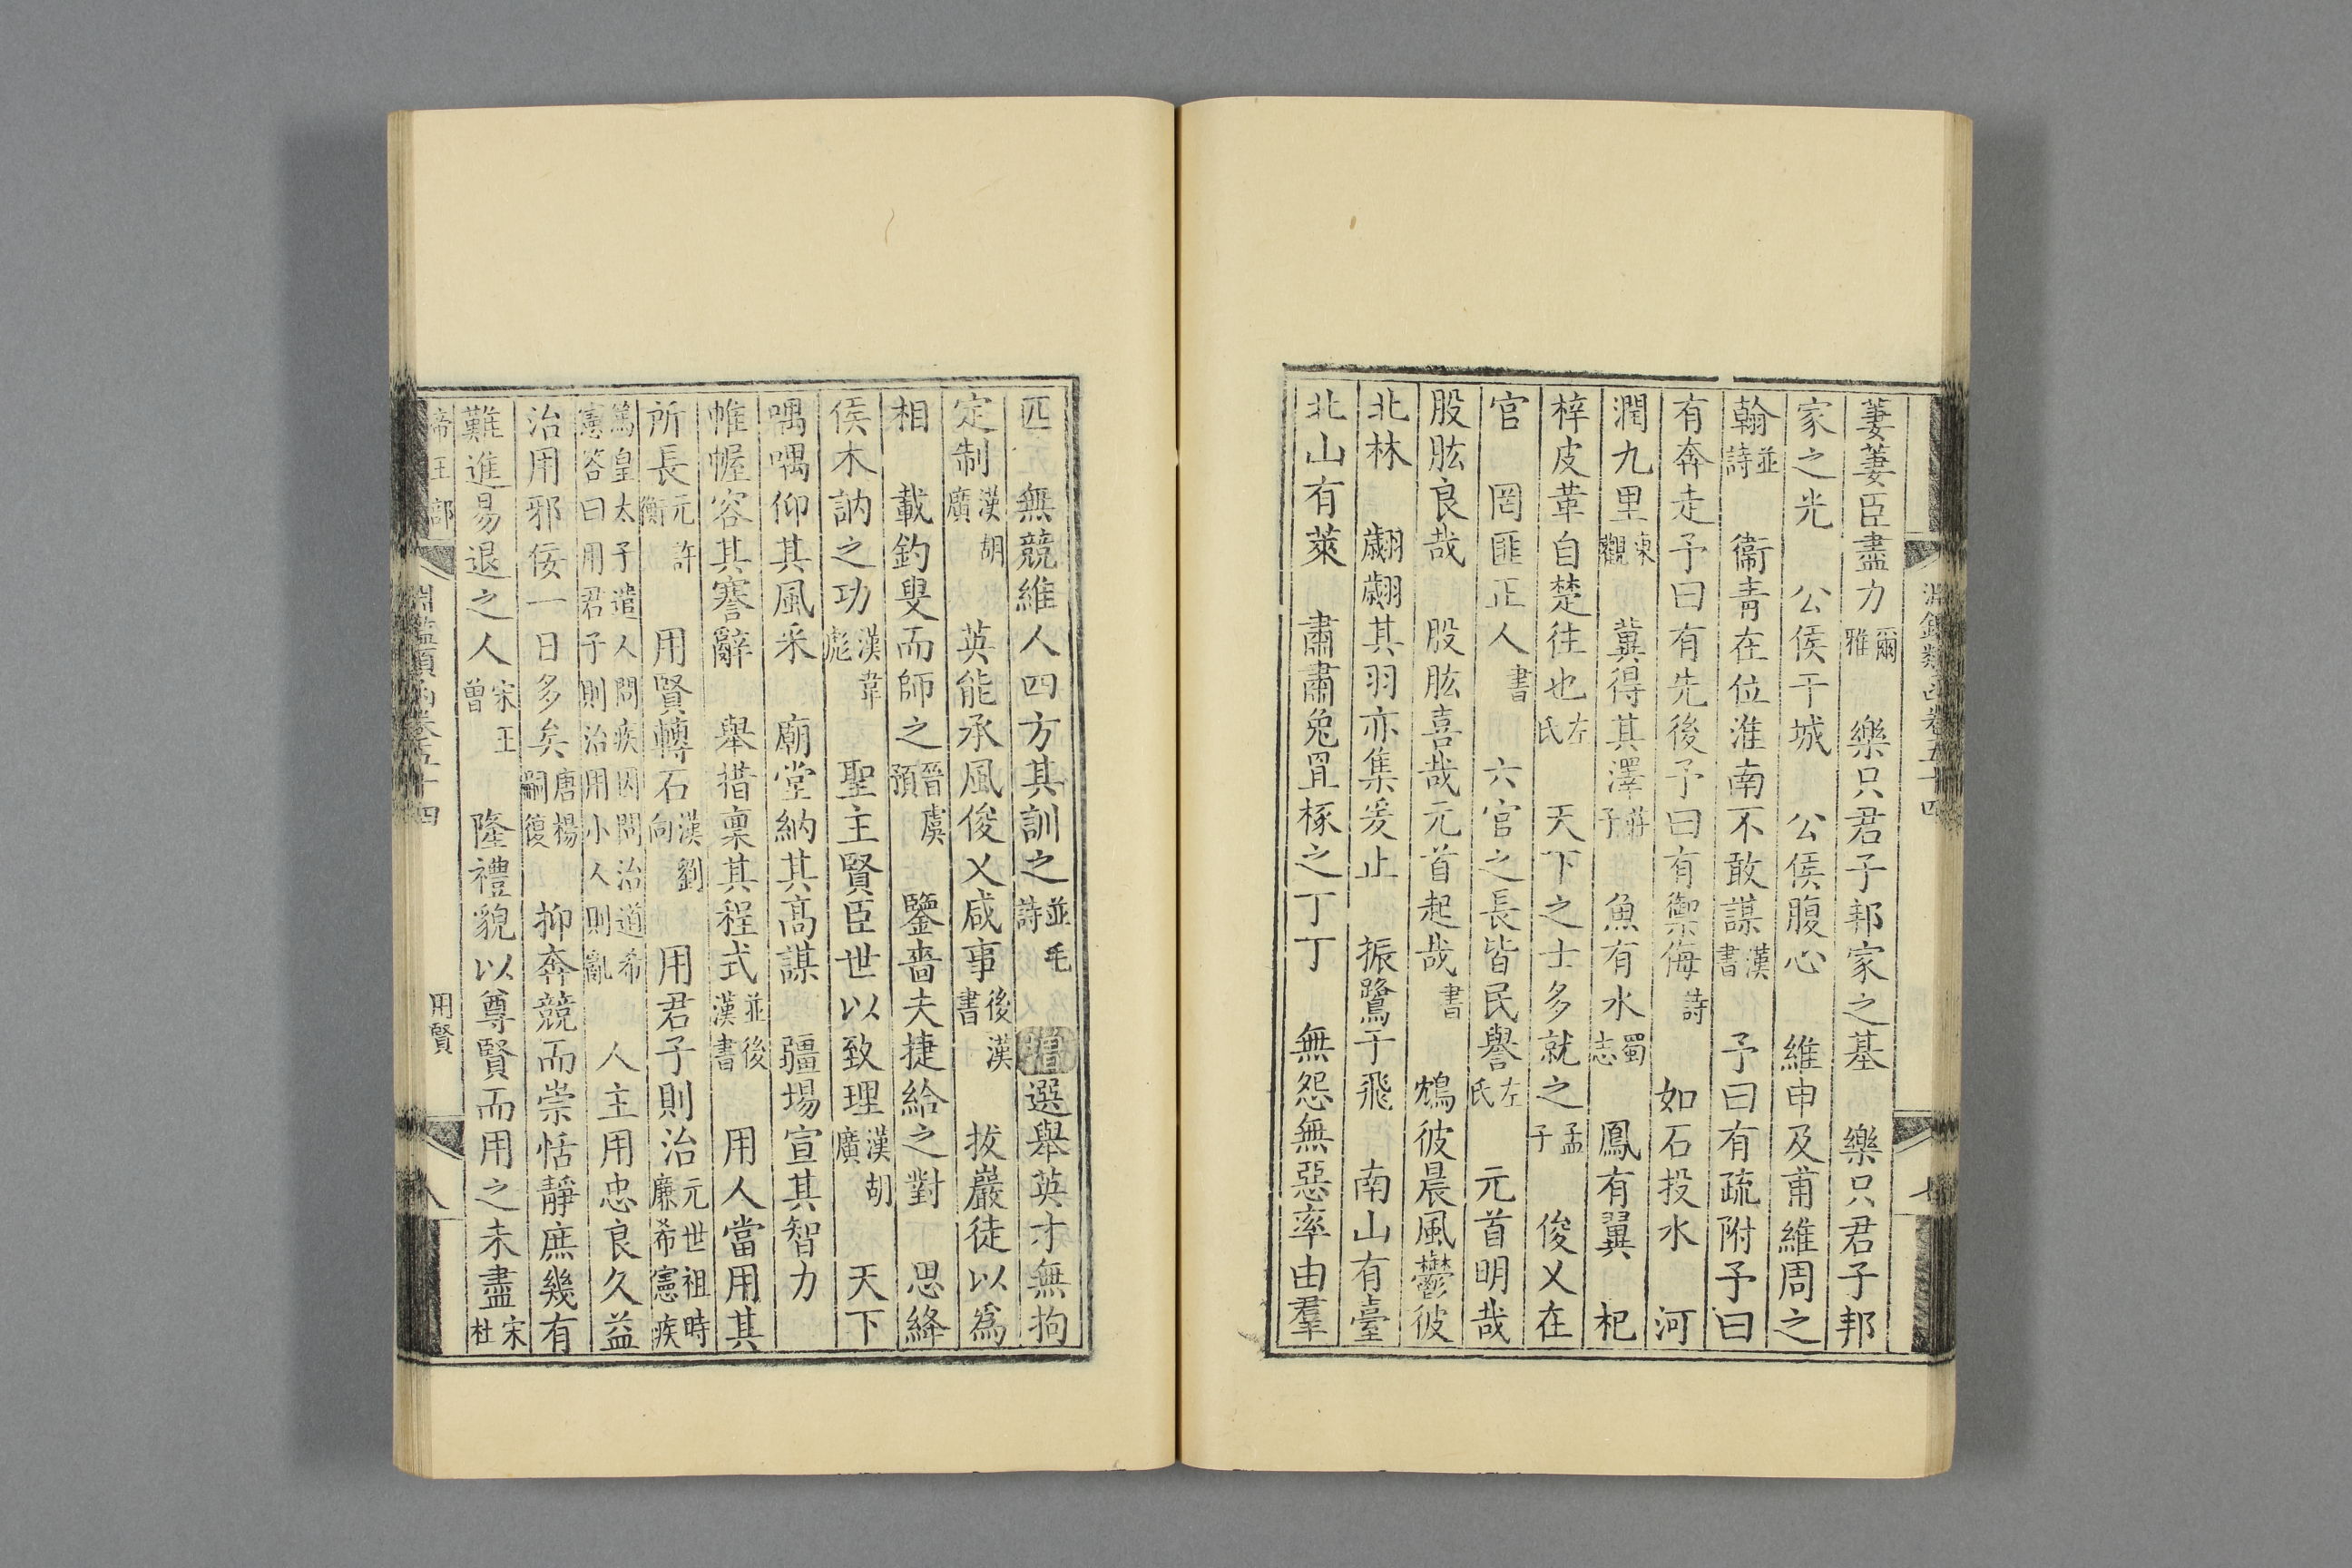 淵鑑類函卷五十四 七
萋萋臣盡力爾雅 樂只君子邦家之基 樂只君子邦
家之光 公侯干城 公侯腹心 維申及甫維周之
翰並詩 衞青在位淮南不敢謀漢書 予曰有疏附予曰
有奔走予曰有先後予曰有禦侮詩 如石投水 河
潤九里東觀 冀得其澤莊子 魚有水蜀志 鳳有翼 杞
梓皮革自楚往也左氏 天下之士多就之孟子 俊乂在
官 罔匪正人書 六官之長皆民譽左氏 元首明哉
股肱良哉 股肱喜哉元首起哉書 鴥彼晨風鬱彼
北林 翽翽其羽亦集爰止 振鷺于飛 南山有臺
北山有萊 肅肅兔罝椓之丁丁 無怨無惡率由羣
匹 無競維人四方其訓之並毛詩 選舉英才無拘
定制漢胡廣 英能承風俊乂咸事後漢書 拔巖徒以爲
相 載釣叟而師之晉虞預 鑒嗇夫捷給之對 思絳
侯木訥之功漢韋彪 聖主賢臣世以致理漢胡廣 天下
喁喁仰其風采 廟堂納其高謀 疆場宣其智力
帷幄容其謇辭 舉措稟其程式並後漢書 用人當用其
所長元許衡 用賢轉石漢劉向 用君子則治元世祖時廉希憲疾
篤皇太子遣人問疾因問治道希憲答曰用君子則治用小人則亂 人主用忠良久益
治用邪佞一日多矣唐楊嗣復 抑奔競而崇恬靜庶幾有
難進易退之人宋王曾 隆禮貌以尊賢而用之未盡宋杜
帝王部 淵鑑類函卷五十四 用賢 八